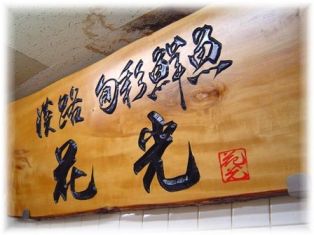 淡路 旬彩鮮魚
花光
花光